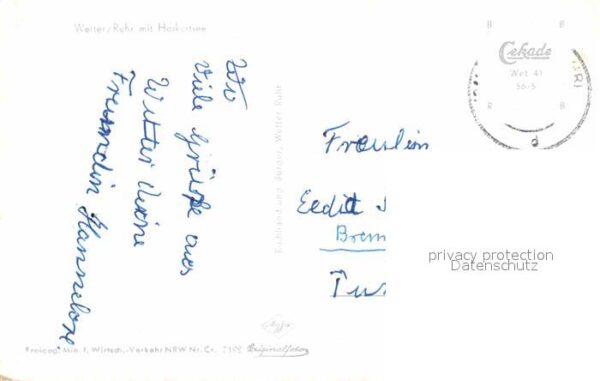 Wetter/Ruhr mit Harkortsee
Viele Grüße aus
Wetter Deine
Freundin Hannelore.
Buchhandlung Junger, Wetter Ruhr
B B
Cekade
Wet. 41
56/5
R B
d
Fräulein
Eedit
Brem
privacy protection
Datenschutz
Agfa
Freigeg. Min. f. Wirtsch. u. Verkehr NRW Nr. Cr. 7198 Originalfoto